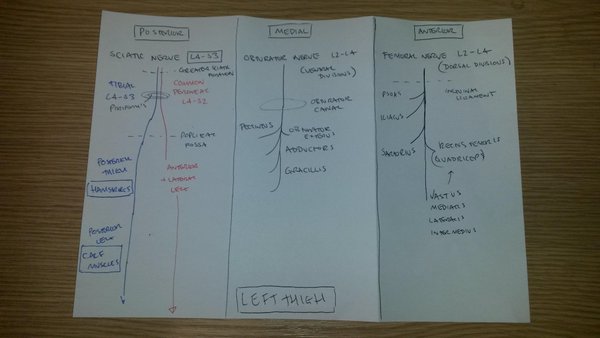 POSTERIOR
SCIATIC NERVE L4-S3
GREATER SCIATIC
FORAMEN
TIBIAL
L4-S3
COMMON
PERONEAL
L4-S2
PIRIFORMIS
POPLITEAL
FOSSA
POSTERIOR
THIGH
HAMSTRINGS
ANTERIOR
+ LATERAL
LEG
POSTERIOR
LEG
CALF
MUSCLES
MEDIAL
OBTURATOR NERVE L2-L4
(VENTRAL
DIVISIONS)
OBTURATOR
CANAL
PECTINEUS
OBTURATOR
EXTERNUS
ADDUCTORS
GRACILLIS
LEFT THIGH
ANTERIOR
FEMORAL NERVE L2-L4
(DORSAL DIVISIONS)
PSOAS
INGUINAL
LIGAMENT
ILIACUS
SARTORIUS
RECTUS FEMORIS
(QUADRICEPS)
VASTUS
MEDIALIS
LATERALIS
INTERMEDIUS